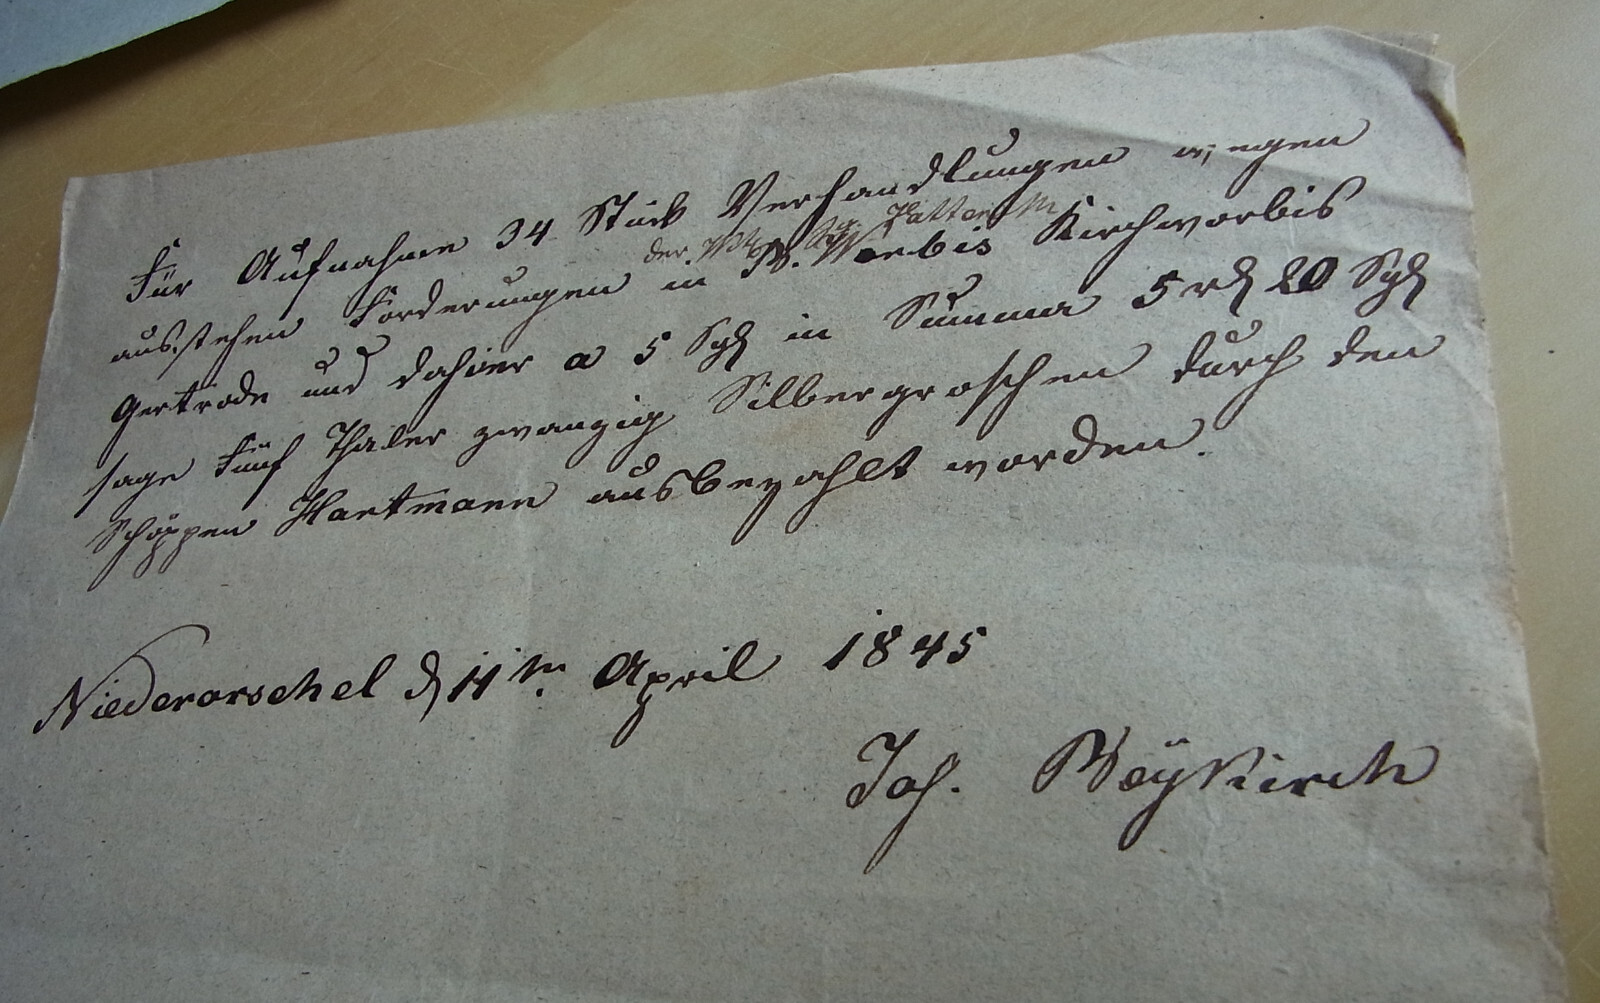 Für Aufnahme 34 Stück Verhandlungen wegen
der
ausstehen Forderungen in Worbis Kirchworbis
Gertrode und dahier a 5 Sgl in Summa 5 rl 20 Sgl
sage Fünf Thaler zwanzig Silbergroschen durch den
Schöppen Hartmann ausbezahlt worden.
Niederorschel d 11tn. April 1845
Joh. Weÿkirch